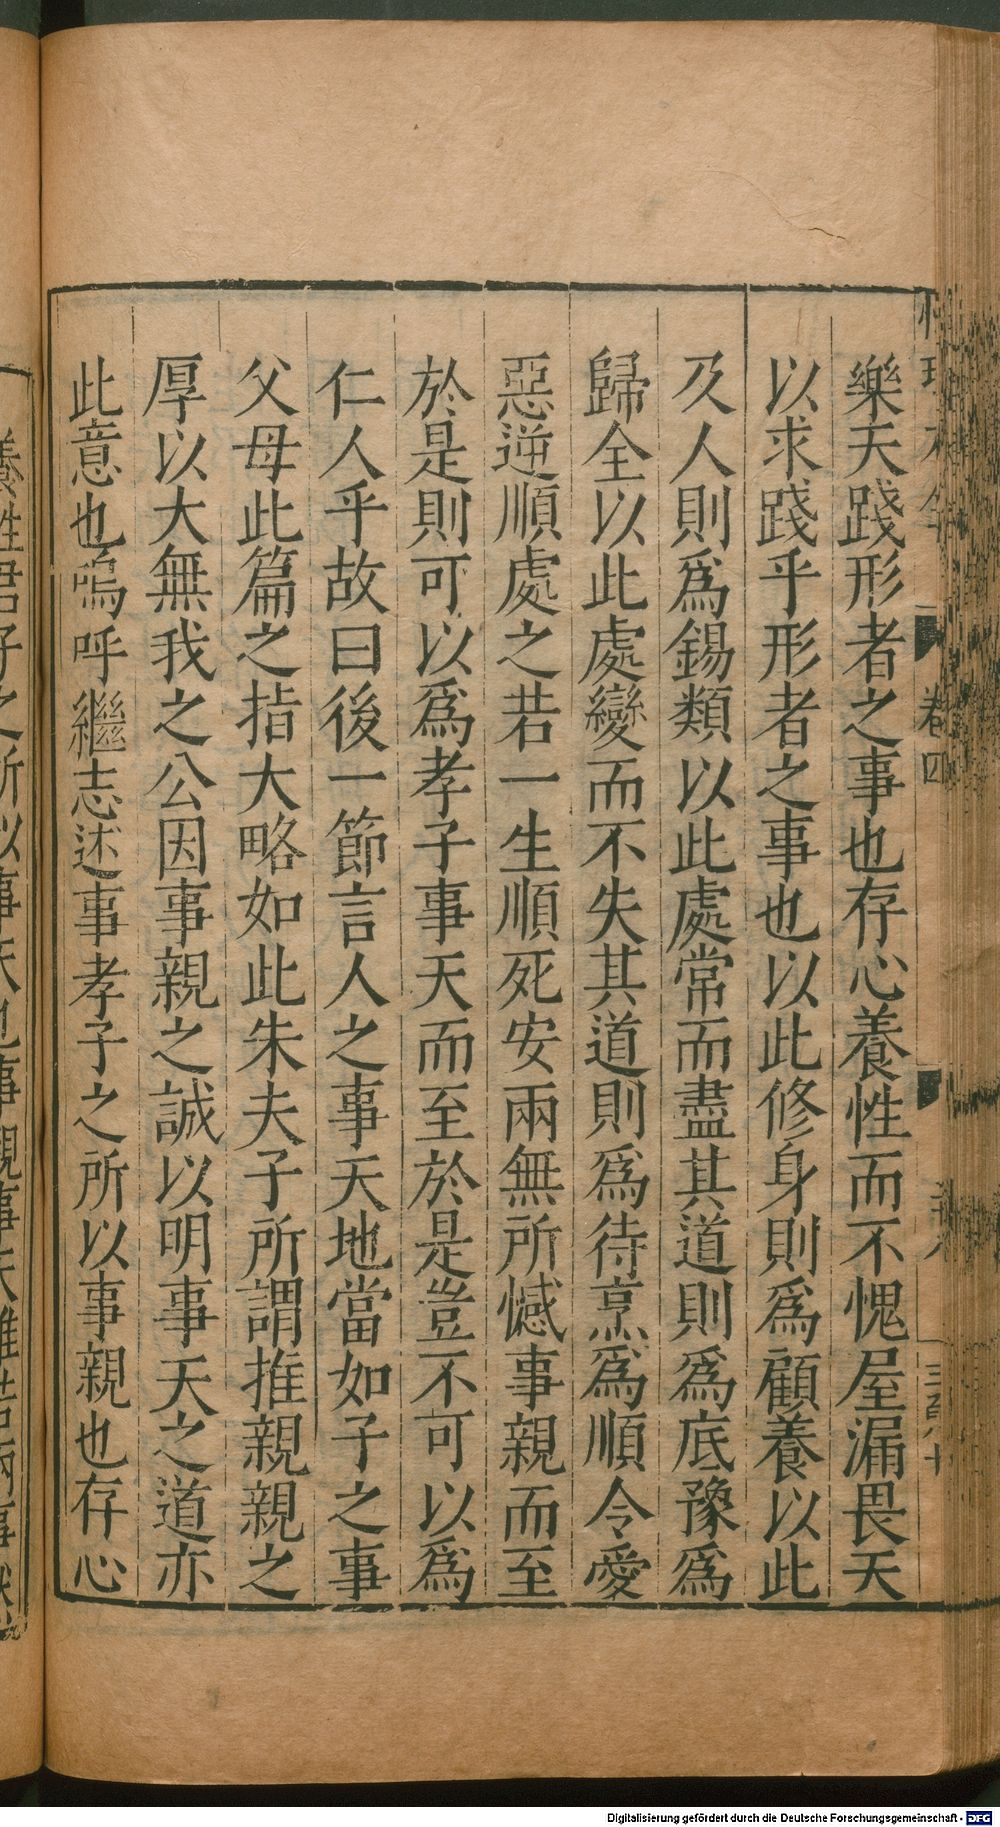 樂天踐形者之事也存心養性而不愧屋漏畏天
以求踐乎形者之事也以此修身則爲顧養以此
及人則爲錫類以此處常而盡其道則爲底豫爲
歸全以此處變而不失其道則爲待烹爲順令愛
惡逆順處之若一生順死安兩無所憾事親而至
於是則可以爲孝子事天而至於是豈不可以爲
仁人乎故曰後一節言人之事天地當如子之事
父母此篇之指大略如此朱夫子所謂推親親之
厚以大無我之公因事親之誠以明事天之道亦
此意也嗚呼繼志述事孝子之所以事親也存心
養性君子之所以事天也事親事天雖若兩事
卷四
Digitalisierung gefördert durch die Deutsche Forschungsgemeinschaft - DFG